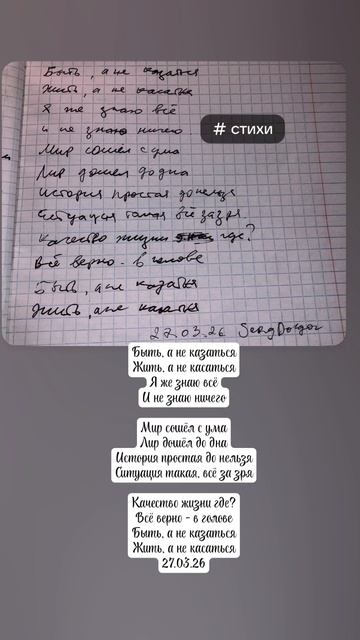 Быть, а не казаться
Жить, а не касаться
Я же знаю всё
и не знаю ничего
# СТИХИ
Мир сошёл с ума
Лир дошёл до дна
История простая донельзя
Ситуация такая всё зазря
Качество жизни где?
Всё верно - в голове
Быть, а не казаться
Жить, а не касаться
27.03.26
Быть, а не казаться
Жить, а не касаться
Я же знаю всё
И не знаю ничего
Мир сошёл с ума
Лир дошёл до дна
История простая до нельзя
Ситуация такая, всё за зря
Качество жизни где?
Всё верно - в голове
Быть, а не казаться
Жить, а не касаться
27.03.26